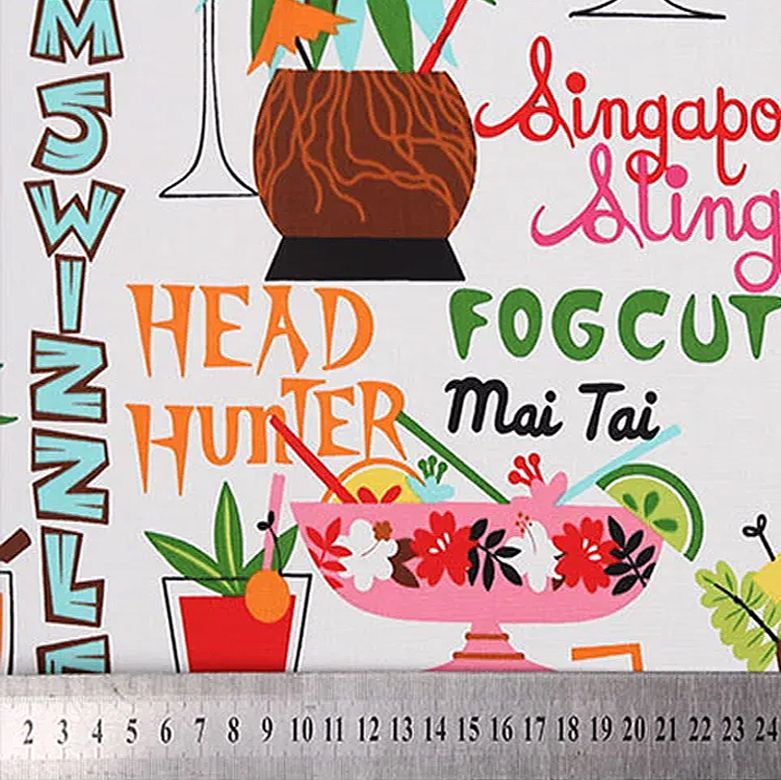 M SWIZZLE
Singapo
Sling
HEAD
HUNTER
FOGCUT
Mai Tai
2 3 4 5 6 7 8 9 10 11 12 13 14 15 16 17 18 19 20 21 22 23 24